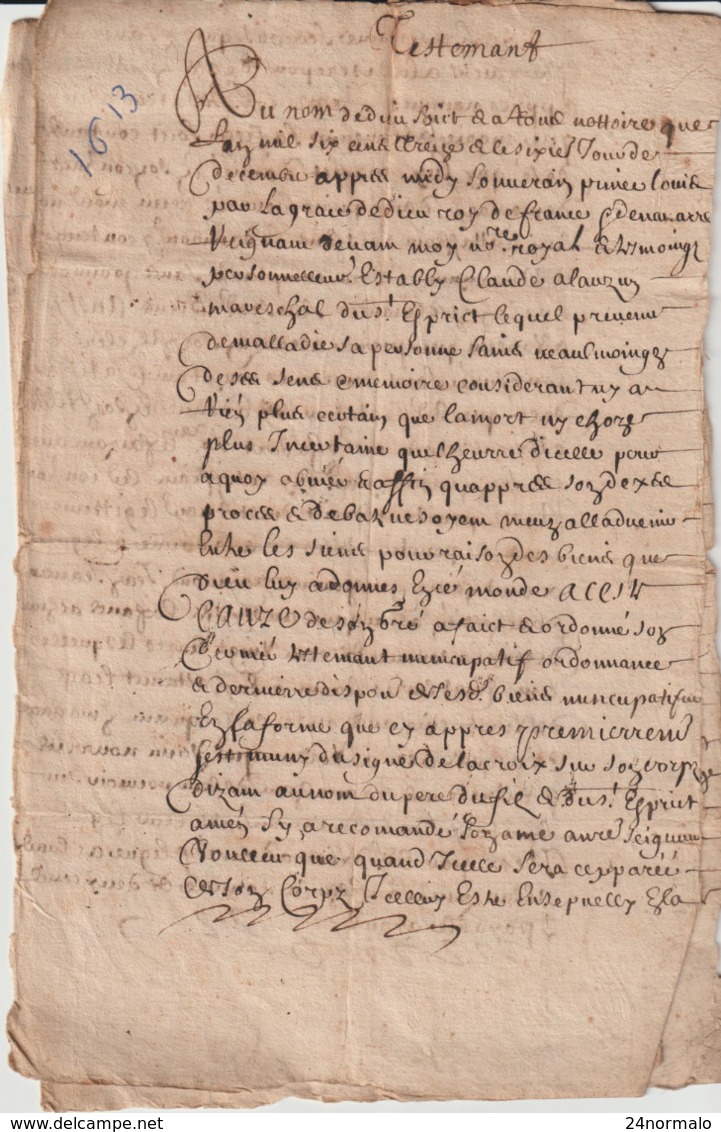 Testemant
1613
Au nom de dieu soict & a tous nottoire que
L'an mil six cens treize & le sixie Jour de
decembre appres midy souverain prince Louis
par la grace de dieu roy de france & de navarre
Reignant devant moy no.re royal & tesmoingz
personnellem.t Estably Claude alauzun
mareschal du s.t Esprict lequel prevenu
de maladie sa personne sains neaulmoingz
de ses sens & memoire considerant ny a
Rien plus certain que la mort ny choze
plus Incertaine que lheurre dicelle pour
a quoy obvier & affin quappres son dexces
proces & debat ne soyent meuz alladvenir
Entre les siens pour raison des biens que
Dieu luy a donnes En ce monde A CEST
CAUZE de son gré a faict & ordonné son
dernier testemant nuncupatif ordonnance
& dernierre dispon & de ses d. biens nuncupatifve
En la forme que cy appres premierrem.t
sest muny du signe de la croix sur son corpz
Dizant au nom du pere du filz & du s.t Esprict
amen Sy a recomandé son ame a nre seigneur
Voulleur que quand Icelle sera cepparée
de son Corpz Icelluy Estre Ensepvelly En la
24normalo